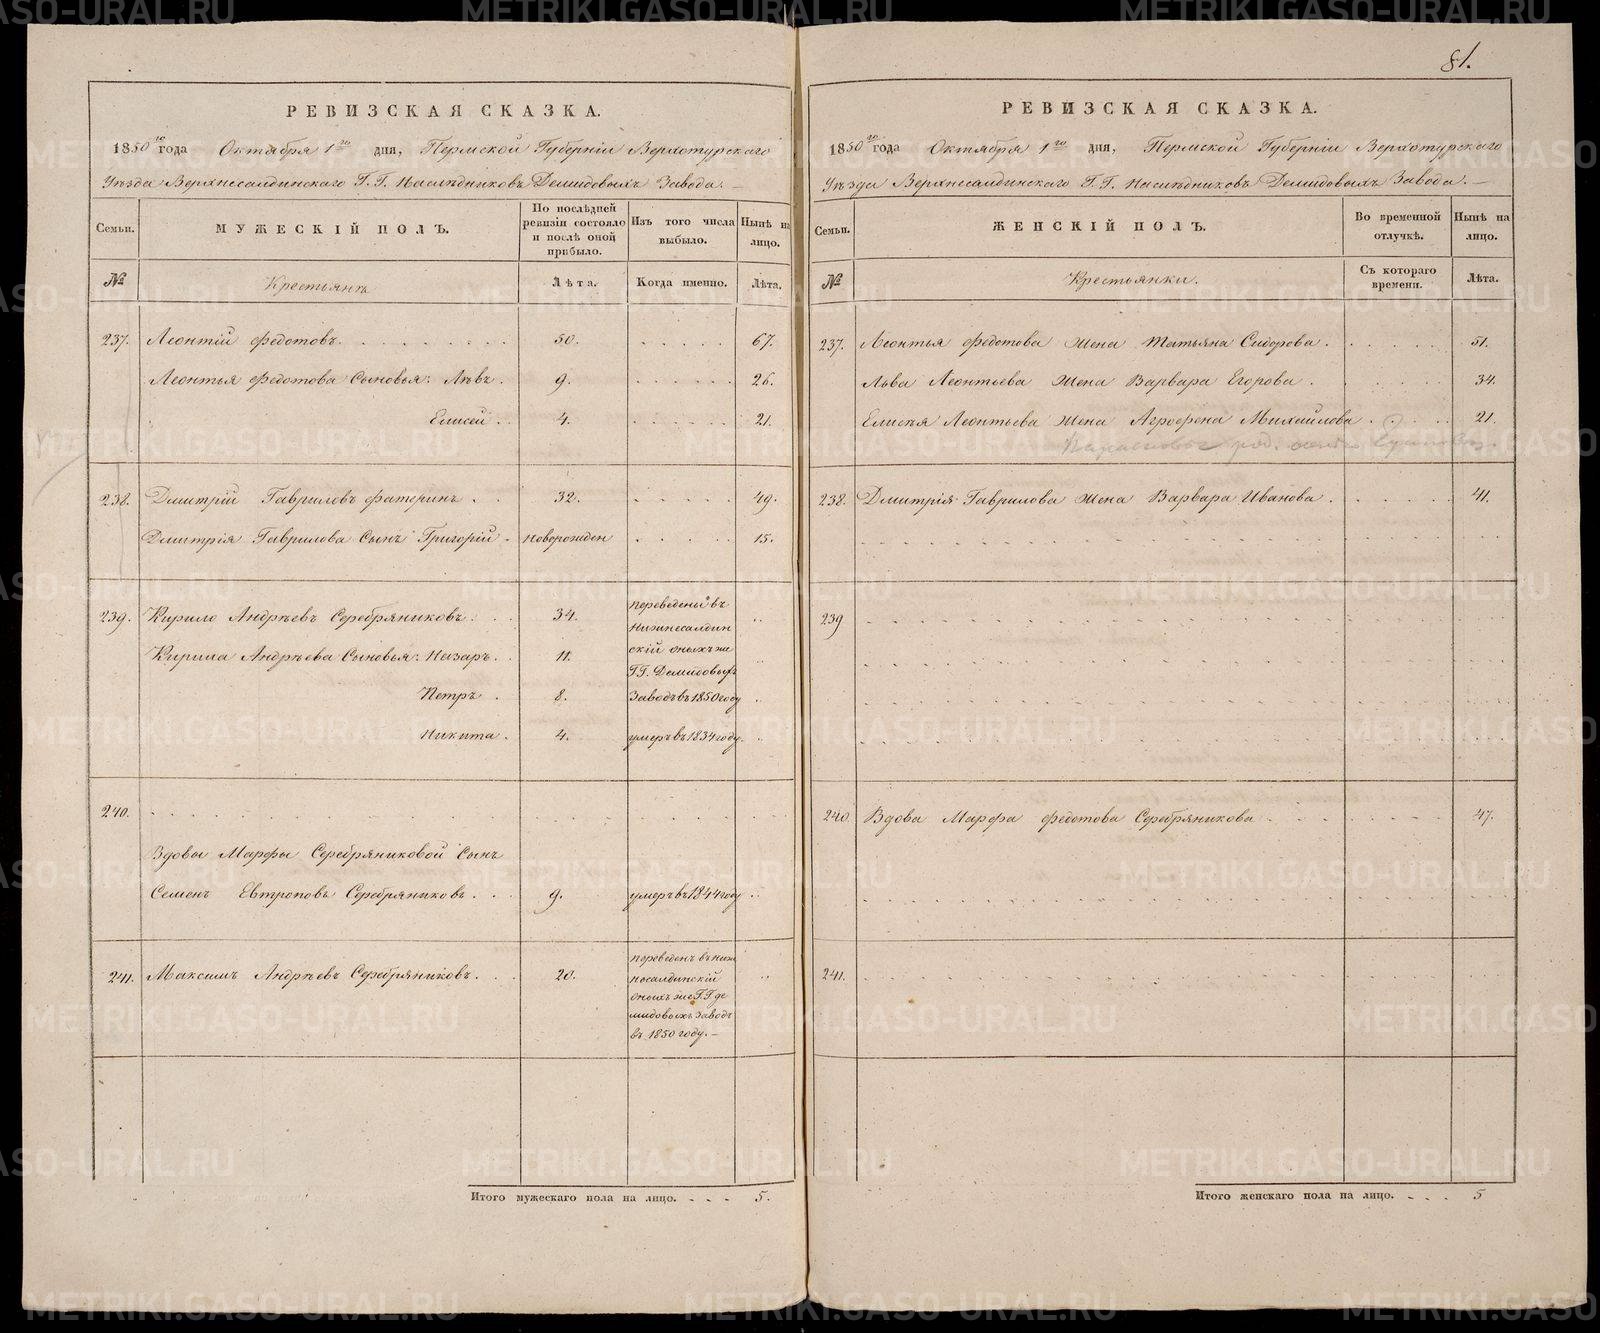 81.
РЕВИЗСКАЯ СКАЗКА.
1850го года Октября 1го дня, Пермской Губернiи Верхотурскаго
Уѣзда Верхнесалдинскаго Г.Г. Наслѣдниковъ Демидовыхъ Завода. —
Семьи. МУЖЕСКIЙ ПОЛЪ. По послѣдней ревизiи состояло и послѣ оной прибыло. Изъ того числа выбыло. Нынѣ на лицо.
№ Крестьянъ Лѣта. Когда именно. Лѣта.
237. Леонтiй Федотовъ. 50. 67.
Леонтья Федотова Сыновья: Львъ. 9. 26.
Елисей. 4. 21.
238. Дмитрiй Гавриловъ Фатеринъ. 32. 49.
Дмитрiя Гаврилова Сынъ Григорiй. новорожден 15.
239. Кирило Андрѣевъ Серебряниковъ. 34. переведены въ
Нижнесалдин
Кирила Андрѣева Сыновья: Назаръ. 11. скiй оныхъ же
Г.Г. Демидовыхъ
Петръ. 8. Заводъ въ 1850 году
Никита. 4. умеръ въ 1834 году.
240.
Вдовы Марфы Серебряниковой Сынъ
Семенъ Евтроповъ Серебряниковъ. 9. умеръ въ 1844 году
241. Максимъ Андрѣевъ Серебряниковъ. 20. переведенъ въ ниж
несалдинскiй
оныхъ же Г.Г. де
мидовыхъ Заводъ
въ 1850 году. —
Итого мужескаго пола на лицо. 5.
РЕВИЗСКАЯ СКАЗКА.
1850го года Октября 1го дня, Пермской Губернiи Верхотурскаго
Уѣзда Верхнесалдинскаго Г.Г. Наслѣдниковъ Демидовыхъ Завода. —
Семьи. ЖЕНСКIЙ ПОЛЪ. Во временной отлучкѣ. Нынѣ на лицо.
№ Крестьянки. Съ котораго времени. Лѣта.
237. Леонтья Федотова жена Татьяна Сидорова. 51.
Льва Леонтьева жена Варвара Егорова. 34.
Елисѣя Леонтьева жена Агрофена Михайлова 21.
238. Дмитрiя Гаврилова жена Варвара Иванова. 41.
239
240. Вдова Марфа Федотова Серебряникова 47.
241.
Итого женскаго пола на лицо. 5
METRIKI.GASO-URAL.RU